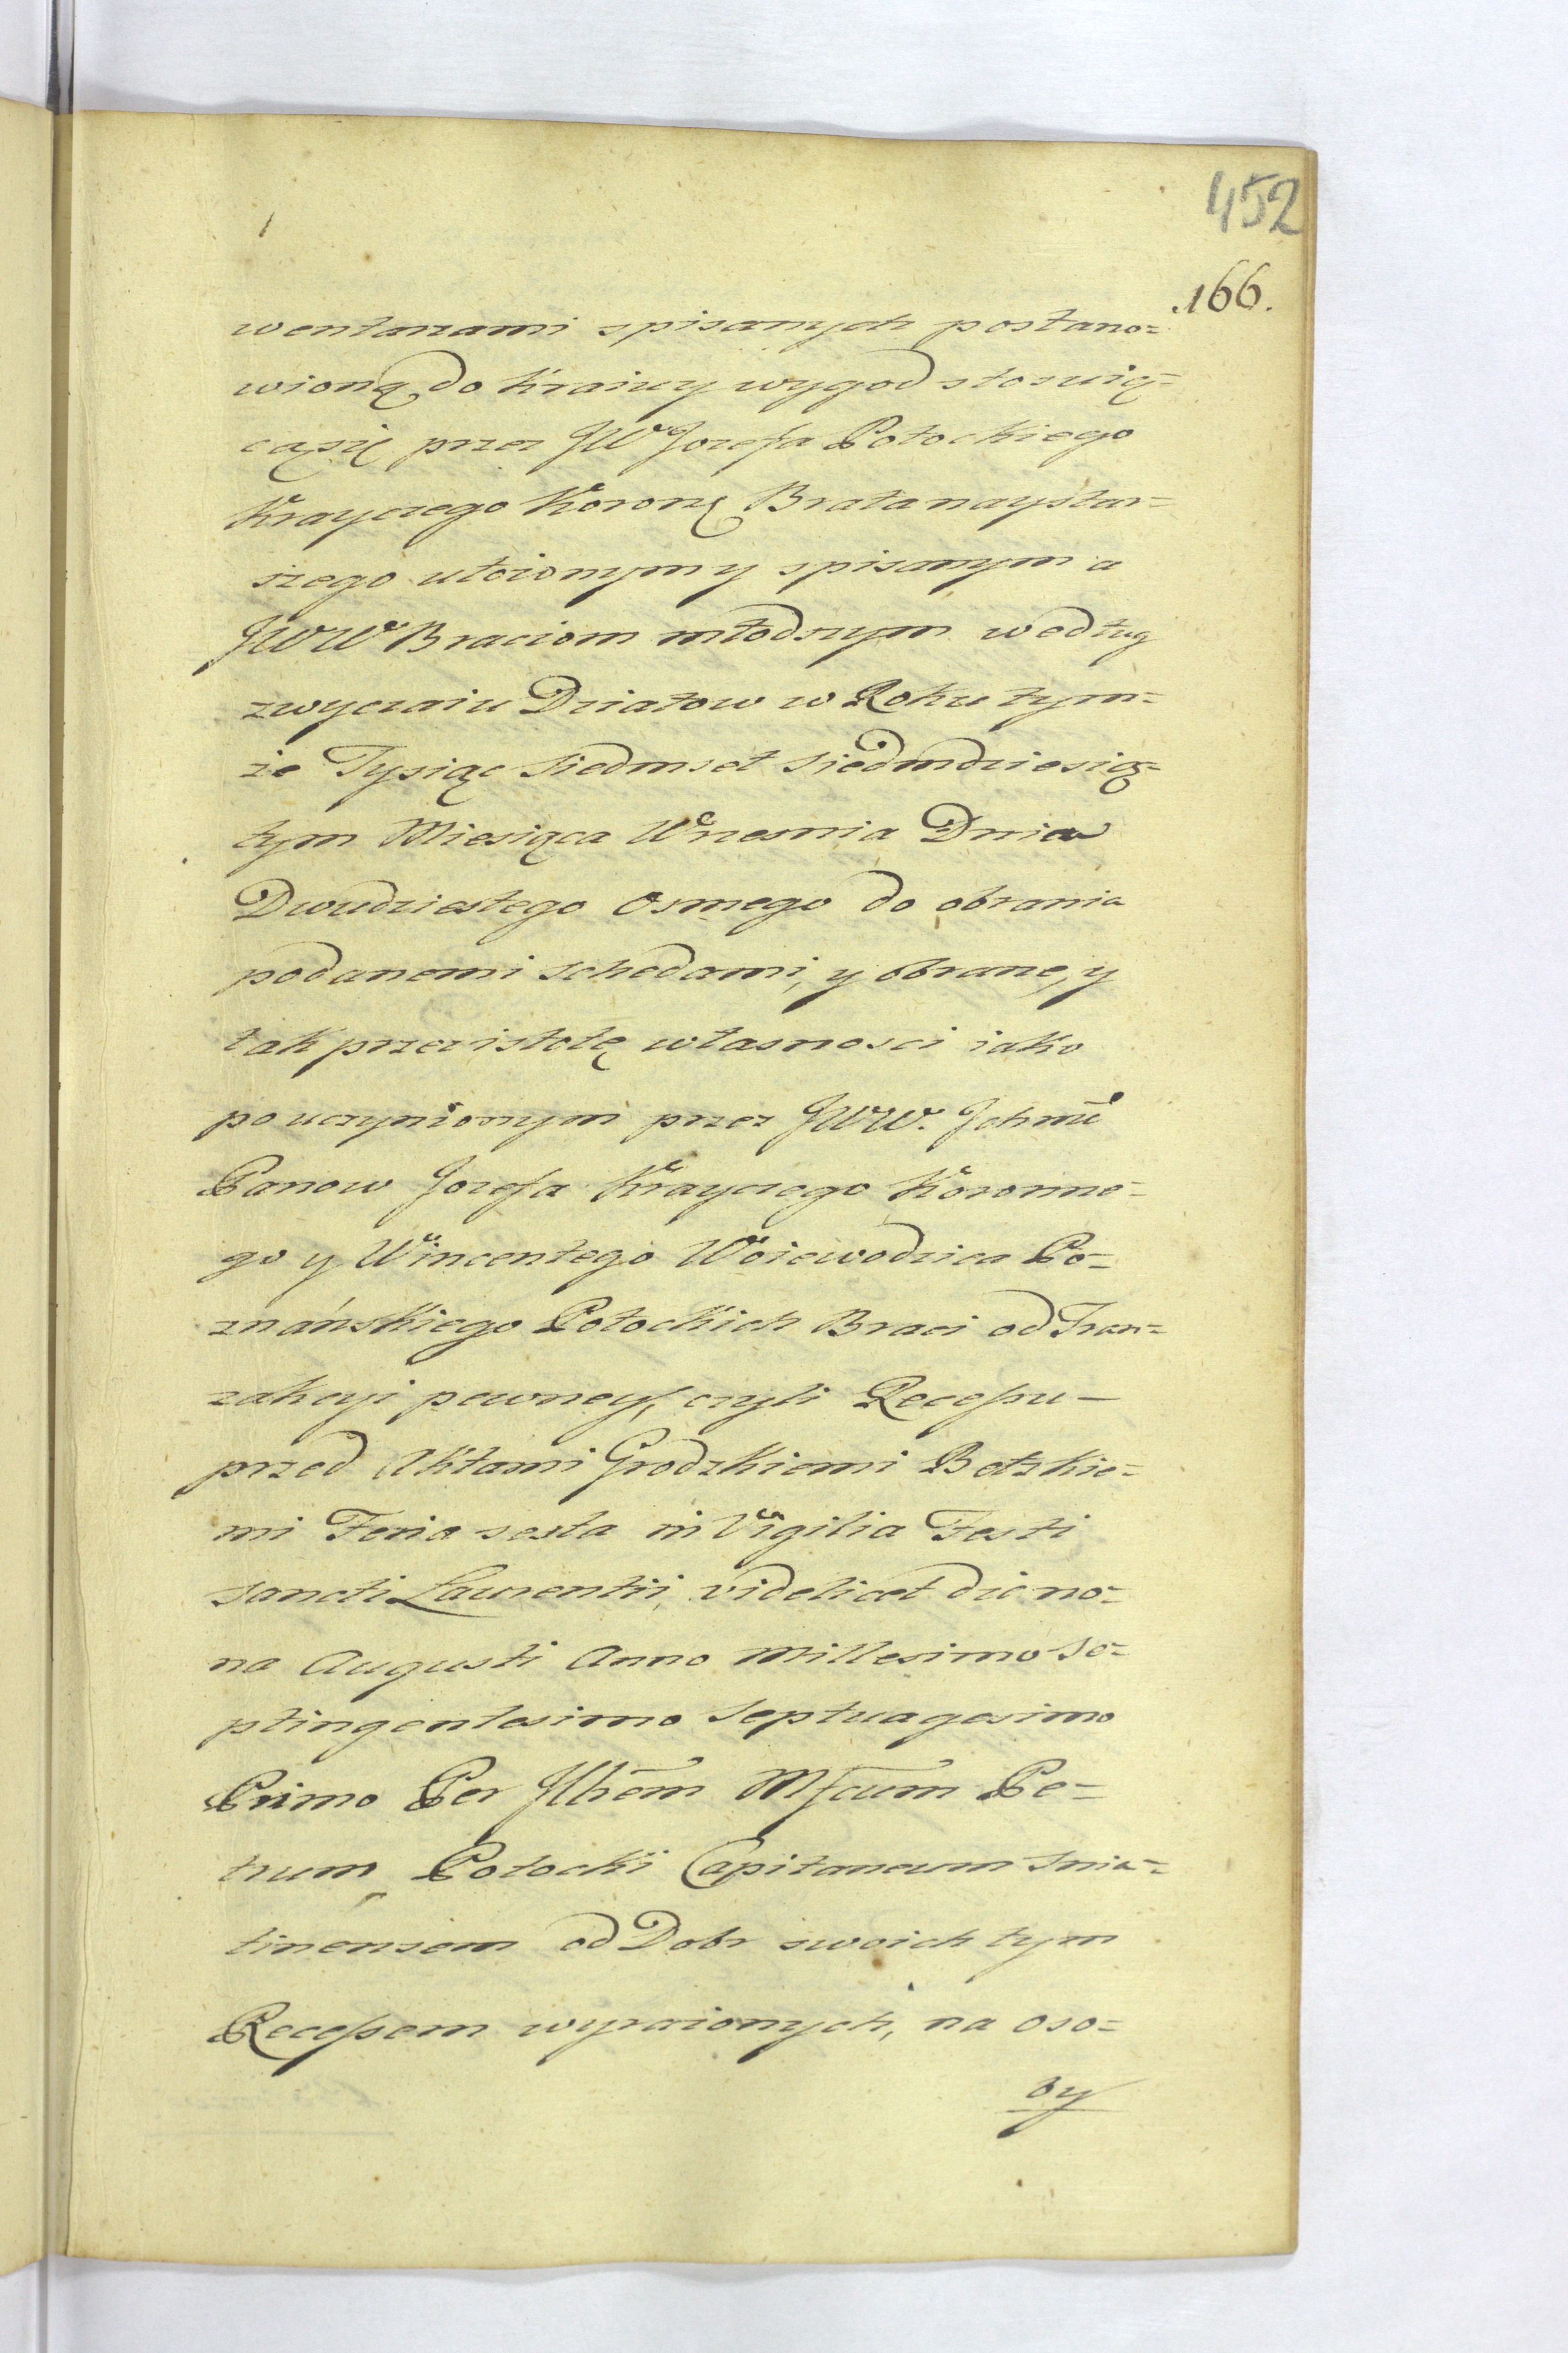 452
166.
wentarzami spisanych postano=
wioną do Krainy wygod stosuią=
cąsię przez JW Jozefa Potockiego
Krayczego Koronę Brata naystar=
szego ułożonym y spisanym a
JWW Braciom młodszym według
zwyczaiu Działow w Roku tym=
że Tysiąc Siedmset Siedmdziesią=
tym Miesiąca Wrzesnia Dnia
Dwudziestego Osmego do obrania
podanemi schedami, y obrane, y
tak przez istotę własnosci iako
po uczynionym przez JWW. Jchmć
Panow Jozefa Krayczego Koronne=
go y Wincentego Woiewodzica Po=
znańskiego Potockich Braci od Tran=
zakcyi pewney, czyli Recessu
przed Aktami Grodzkiemi Bełzkie=
mi Feria sexta in Vigilia Festi
Sancti Laurentii, videlicet die no=
na Augusti Anno Millesimo Se=
ptingentesimo Septuagesimo
Primo Per Jllrem Mfcum Pe=
trum Potocki Capitaneum Snia=
tinensem od Dobr swoich tym
Recessem wyrażonych, na oso=
by